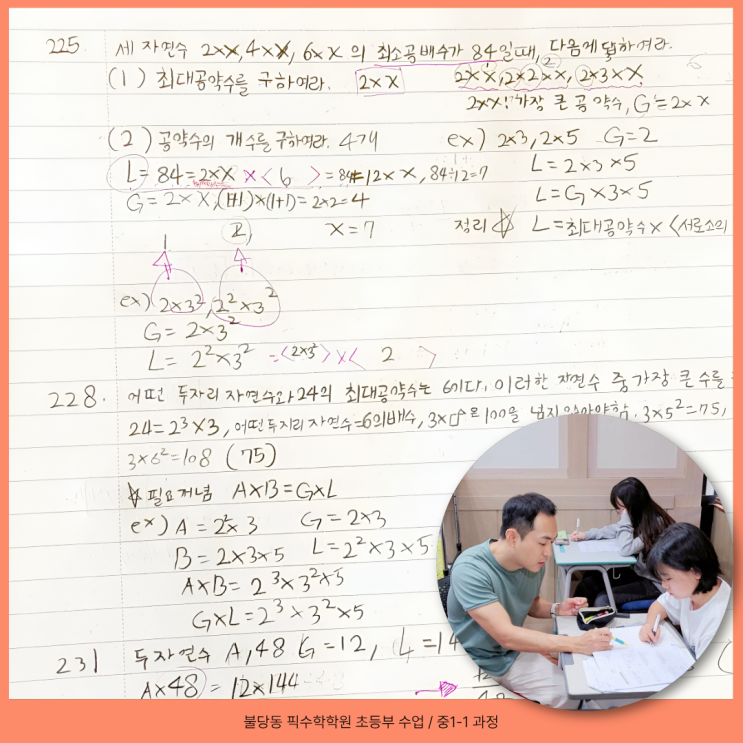 225. 세 자연수 2×x, 4×x, 6×x 의 최소공배수가 84일때, 다음에 답하여라.
(1) 최대공약수를 구하여라. 2×x 2×x, 2×2×x, 2×3×x
(2)
2×x: 가장 큰 공약수, G=2×x
(2) 공약수의 개수를 구하여라. 4개 ex) 2×3, 2×5 G=2
L=84=2×x×〈6〉=84=12×x, 84÷12=7 L=2×3×5
G=2×x, (1+1)×(1+1)=2×2=4 L=G×3×5
x=7 정리☆ L=최대공약수×〈서로소의
1 2
ex) 2×3², 2²×3²
G=2×3²
L=2²×3² =〈2×3²〉×〈 2 〉
228. 어떤 두자리 자연수와 24의 최대공약수는 6이다. 이러한 자연수 중 가장 큰 수를
24=2³×3, 어떤 두자리 자연수=6의배수, 3×□²은 100을 넘지 않아야함. 3×5²=75,
3×6²=108 (75)
☆필요개념 A×B=G×L
ex) A=2²×3 G=2×3
B=2×3×5 L=2²×3×5
A×B=2³×3²×5
G×L=2³×3²×5
231 두자연수 A, 48 G=12, L=14
A×48=12×144
불당동 픽수학학원 초등부 수업 / 중1-1 과정